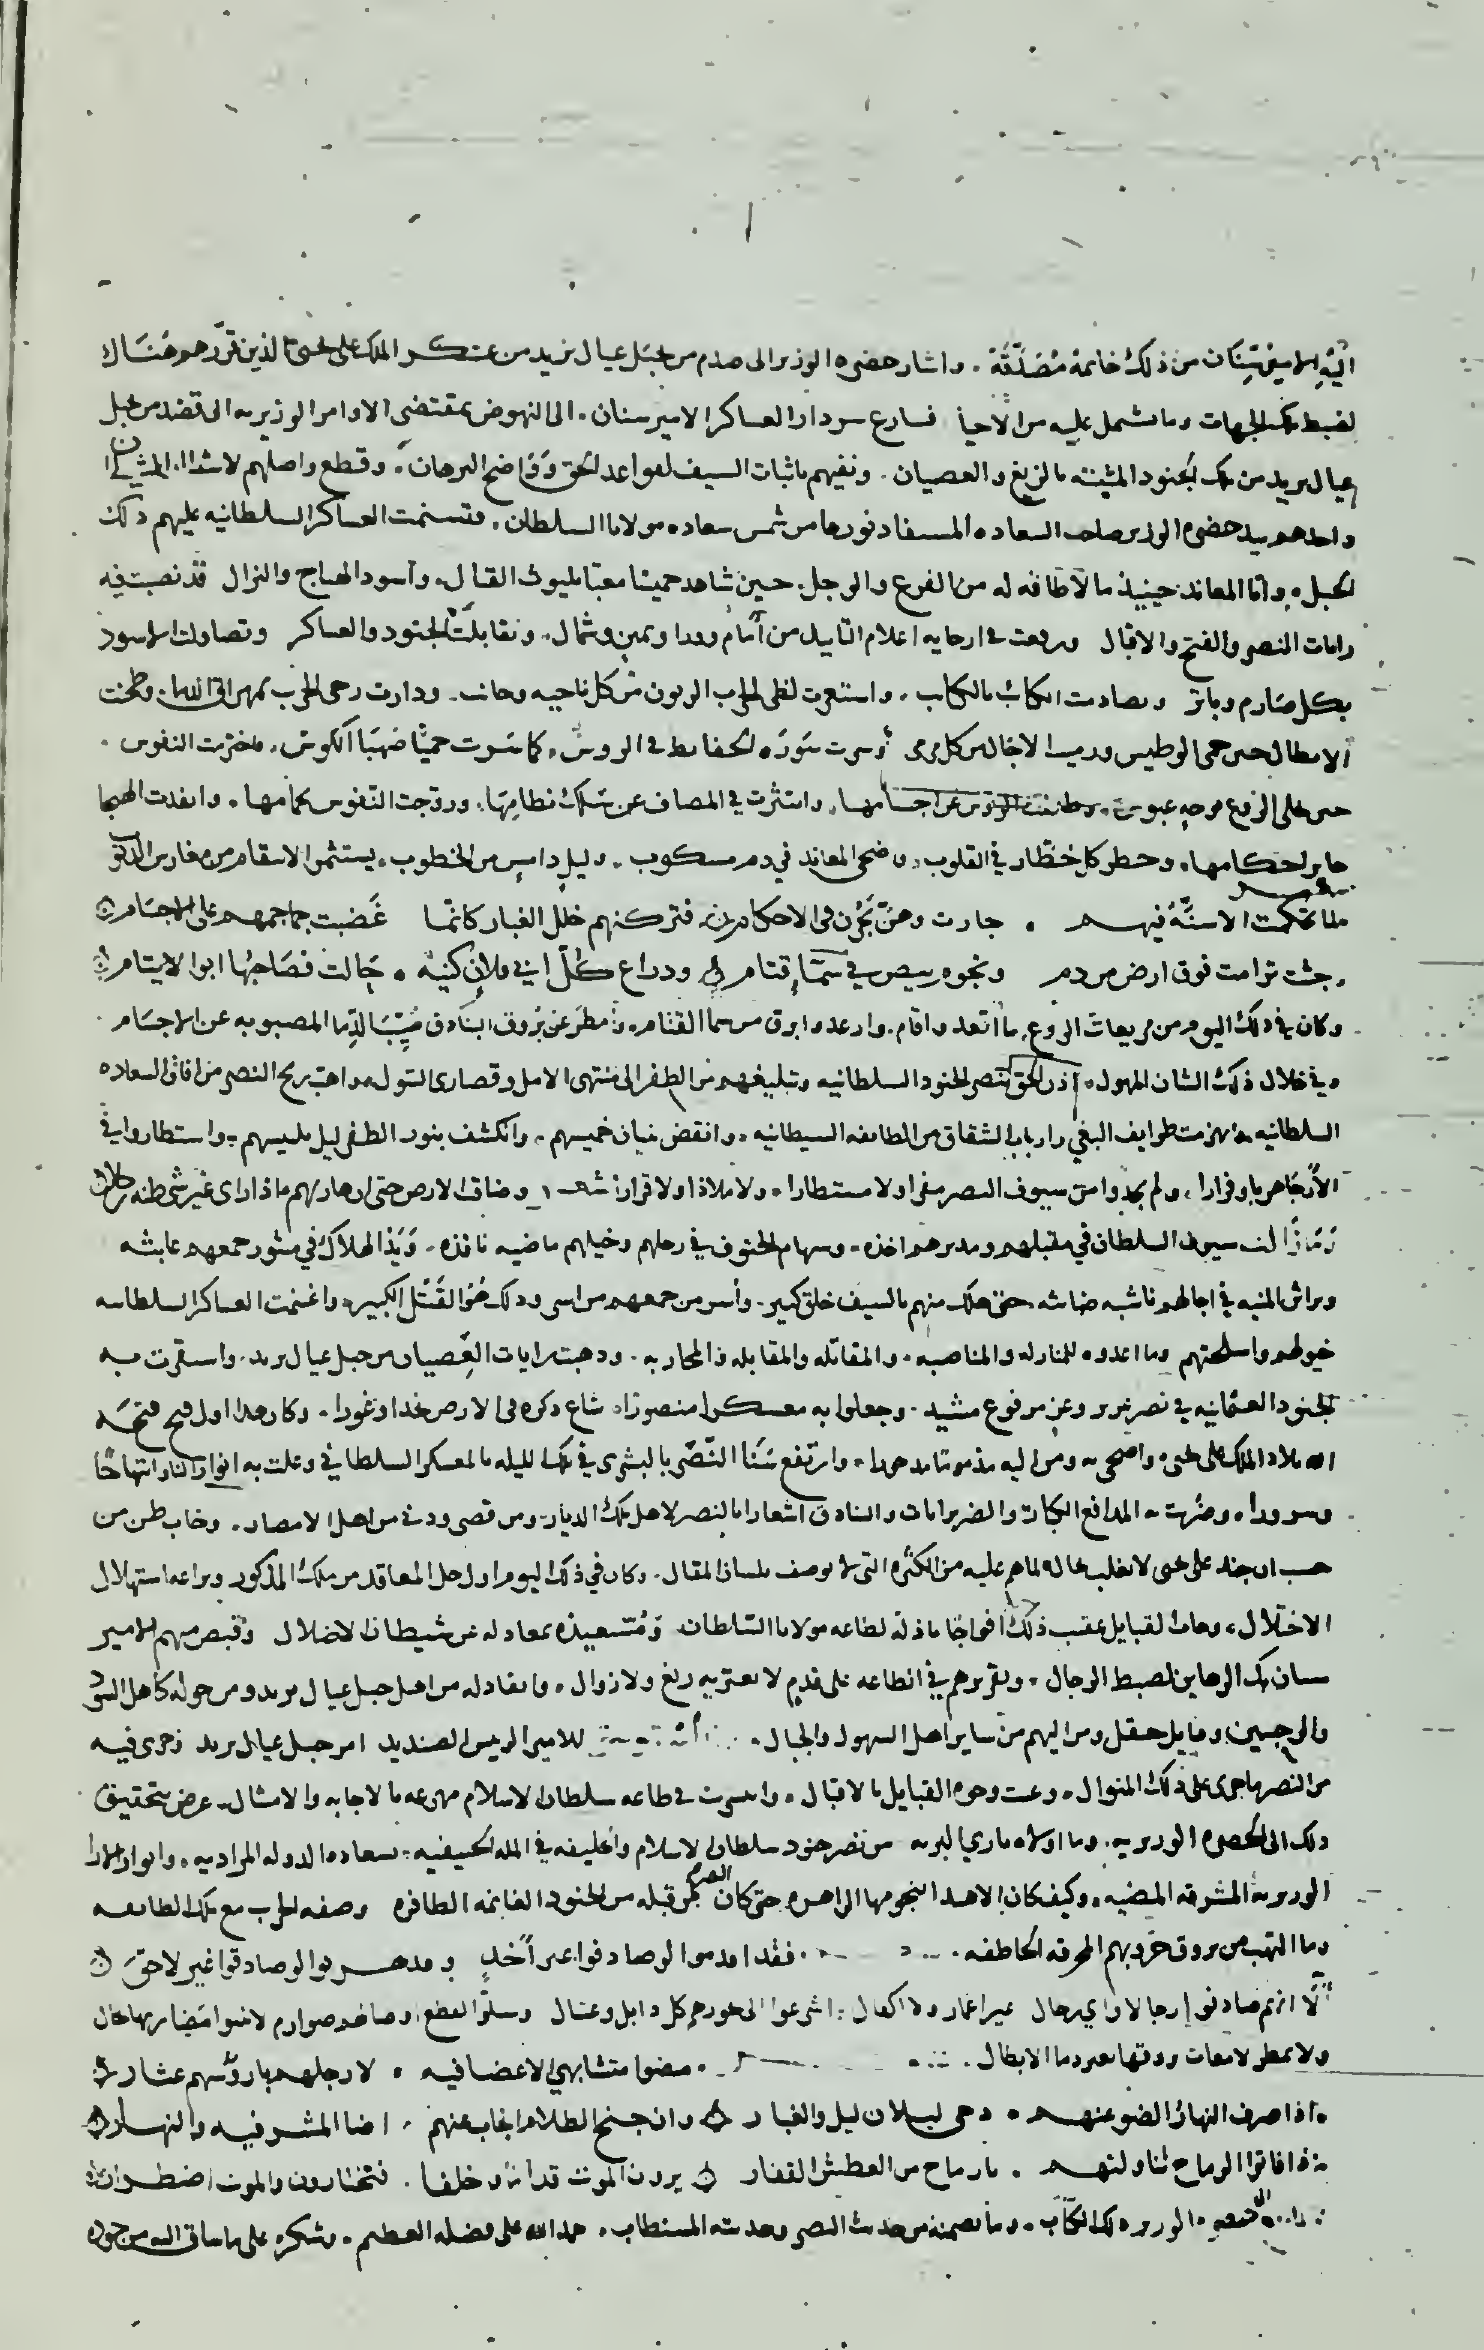 اليه الامير سنان من ذلك خاتمة مصدقة . واشار حضرة الوزير الى صدم من بجبل عيال يزيد من عسكر الملك على يحيى الذين تقرر هو هناك
لضبط تلك الجهات وما تشمل عليه من الاحيا فسارع سردار العساكر الامير سنان . الى النهوض بمقتضى الاوامر الوزيريه الى قصد من بجبل
عيال يزيد من تلك الجنود المثبته بالزيغ والعصيان . ونفيهم باثبات السيف لقواعد الحق وواضح البرهان . وقطع واصلهم
واحدهم بيد حضرة الوزير صاحب السعاده المستفاد نورها من شمس سعادة مولانا السلطان . فتسنمت العساكر السلطانيه عليهم ذلك
الجبل . واتا المعاند حينيذ ما لا طاقه له من الفزع والوجل . حين شاهد خميسا معبا بليوث القتال . وآسود الهياج والنزال قد نصبت فيه
رايات النصر والفتح والاقبال ورفعت في ارجايه اعلام التاييد من أمام وورا ويمين وشمال . وتقابلت الجنود والعساكر وتصاولت الاسود
بكل صارم وباتر وتصادمت الكتائب بالكتايب . واستعرت لظى الحرب الزبون من كل ناحيه وجانب . ودارت رحى الحرب وطحنت
الابطال حين حمى الوطيس ودنت الاجال من كل مرمى وسرت سورة الحفايظ في الروس . كما سرت حميا صهبا الكوس . فاخترمت النفوس .
حين تجلى الروع بوجه عبوس . وطارت الروس عن اجسامها . وانتثرت في المصاف عن سلك نظامها . وزوجت النفوس بحمامها . وانفذت الهيجا
جاير احكامها . وخطر كل خطار في القلوب . واضحى المعاند في دم مسكوب . وليل دامس من الخطوب . يستثمر الانتقام من مغارس الذنوب
شعر
ولما تحكمت الاسنة فيهم . جارت وهن يجرن في الاحكام فتركنهم خلل الغبار كانما غضبت جماجمهم على الاجسام
وجثث ترامت فوق ارض من دم ونجوم بيض في سما قتام وذراع كل ابي فلان كنية . حالت فصاحبها ابو الايتام
وكان في ذلك اليوم من مريعات الروع . ما اقعد واقام . وارعد وابرق من سما القتام . وامطر عن بروق البنادق صيب الدما المصبوبه عن الاجسام .
وفي خلال ذلك الشان المهول . اذن الحق بنصر الجنود السلطانيه وتبليغهم من الظفر الى منتهى الامل وقصارى السول . واهب ريح النصر من افاق السعاده
السلطانيه فانهزمت طوايف البغى وارباب الشقاق من الطايفه الشيطانيه . وانقض بنيان خميسهم . وانكشف بنور الظفر ليل تلبيسهم . واستطاروا في
الأرجاء هربا وفرارا . ولم يجدوا من سيوف النصر مفرا ولا مستطارا . ولا ملاذا ولا قرارا شعر وضاقت الارض حتى ان هاربهم اذا راى غير شى ظنه رجلا
وما زالت سيوف السلطان في مقبلهم ومدبرهم اخذه . وسهام الحتوف في رجلهم وخيلهم ماضيه نافذه . ويد الهلاك في منثور جمعهم عابثه
وبراثن المنيه في اجالهم ناشبه ضابثه . حتى هلك منهم بالسيف خلق كبير . وأسر من جمعهم من اسر وذلك هو القتل الكبير . واغتنمت العساكر السلطانيه
خيولهم واسلحتهم وما اعدوه للمنازله والمناصبه . والمقاتله والمقابله والمحاربه . وذهبت رايات العصيان من جبل عيال يزيد . واستقرت به
الجنود العثمانيه في نصر عزيز وعز مرفوع مشيد . وجعلوا به معسكرا منصورا . شاع ذكره في الارض نجدا وغورا . وكان هذا اول فتح فتحه
الله ببلاد الملك على يحيى . واضحى به ومن اليه مذموما مدحورا . وارتفع سنا النصر بالبشرى في تلك الليله بالمعسكر السلطاني وعلت به انوار النار ابتهاجا
وسرورا . وضربت المدافع الكبار والضربزانات والبنادق اشعارا بالنصر لاهل تلك الديار . ومن قصى ودنى من اهل الامصار . وخاب ظن من
حسب ان جند على يحيى لا تغلب بحاله لما هم عليه من الكثره التي لا توصف بلسان المقال . وكان في ذلك اليوم اول حل المعاقد من ملك المذكور وبراعة استهلال
الاختلال . وجات القبايل عقب ذلك افواجا باذلة لطاعه مولانا السلطان ومستعيذة بمعادله من شيطان الاضلال وقبض منهم الامير
سنان تلك الرهاين لضبط الرجال . وتقريرهم في الطاعه على قدم لا يعتريه زيغ ولا زوال . وانقاد له من اهل جبل عيال يزيد ومن حوله كاهل السود
والرحبين وقبايل حقل ومن اليهم من ساير اهل السهول والجبال . للامير الريس الصنديد امر جبل عيال يزيد وجرى فيه
من النصر ما جرى على ذلك المنوال . وعنت وجوه القبايل بالاقبال . وانسربت في طاعه سلطان الاسلام مهرعه بالاجابه والامثال . عرض بتحقيق
ذلك الى الحضره الوزيريه . وما اولاه باري البريه من نصر جنود سلطان الاسلام والخليفه في المله الحنيفيه . بسعاده الدوله المراديه . وانوار الارا
الوزيريه المشرقه المضيه . وكيف كان الاهتدا بنجومها الزاهره حتى كان النصر من قبله من الجنود الغانمه الظافره وصفه الحرب مع تلك الطايفه
وما التهب من بروق حربهم المحرقه الخاطفه . فقد اقدموا لو صادفوا غير آخذ وقد هربوا لو صادفوا غير لاحق
الا انهم صادفوا رجالا واي رجال غير اغمار ولا اكفال . اشرعوا الى نحورهم كل ذابل وعسال وسلوا لقطع اوصالهم صوارم
ولا تمطر لامعات بروقها بغير دما الابطال . مضوا متشابهي الاعضا فيه . لارجلهم باروسهم عثار
اذا صرف النهار الضو عنهم . دجى ليلان ليل والغبار وان جنح الظلام انجاب عنهم . اضا المشرفيه والنهار
اذا فاتوا الرماح تناولتهم . بارماح من العطش القفار يرون الموت قداما وخلفا . فيختارون والموت اضطرار
الوزير ذلك الكتاب . وما تضمنه من حديث النصر وحديثه المستطاب . حمد الله على فضله العظيم . وشكره على ما ساق اليه من جوده